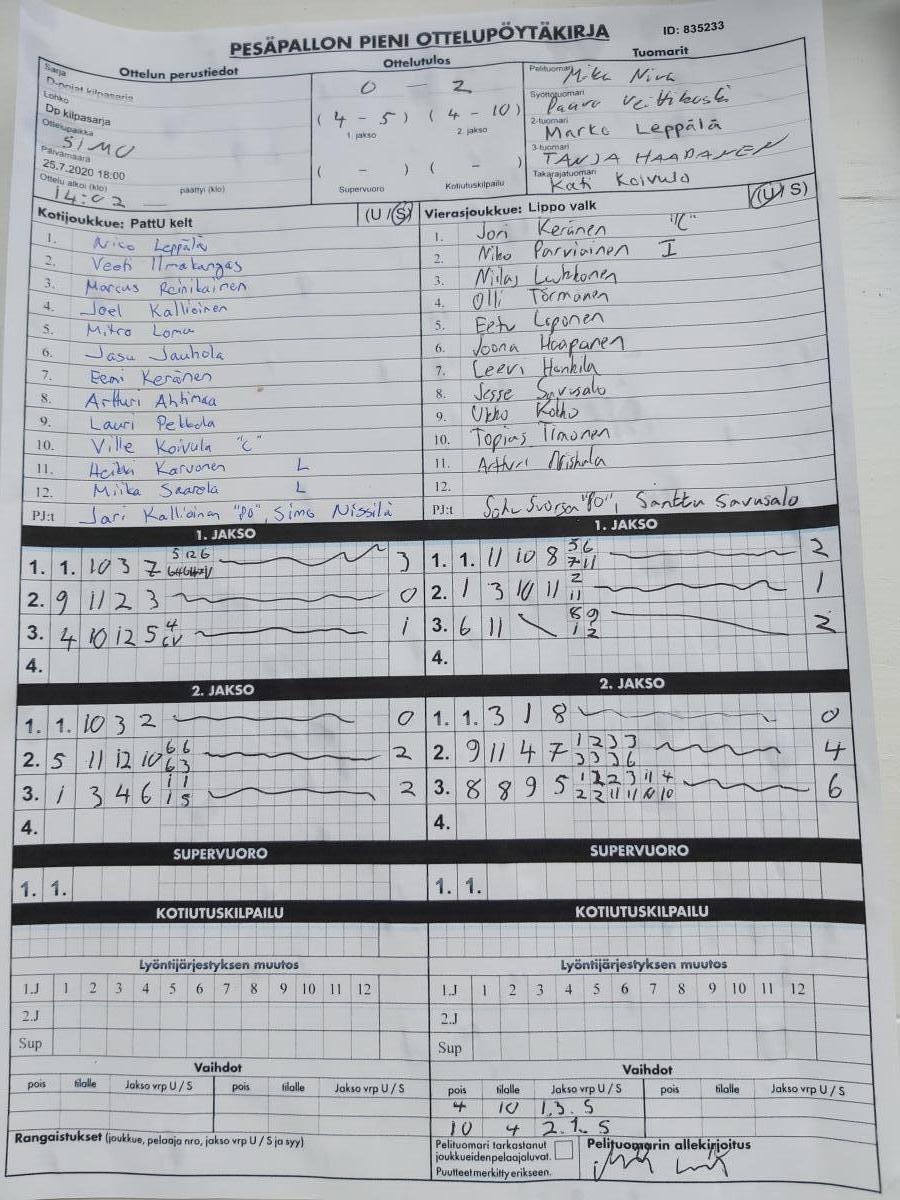 PESÄPALLON PIENI OTTELUPÖYTÄKIRJA ID: 835233
Ottelun perustiedot Ottelutulos Tuomarit
Sarja
D-pojat kilpasarja
Lohko
Dp kilpasarja
Ottelupaikka
SIMO
Päivämäärä
25.7.2020 18:00
Ottelu alkoi (klo) päättyi (klo)
14:02
0 - 2
(4 - 5) (4 - 10)
1. jakso 2. jakso
( - ) ( - )
Supervuoro Kotiutuskilpailu
Pelituomari
Mika Niva
Syöttötuomari
Paavo
2-tuomari
Marko Leppälä
3-tuomari
TANJA HAAPANEN
Takarajatuomari
Kati Koivula
Kotijoukkue: PattU kelt (U / S)
1. Nico Leppälä
2. Veeti Ilmakangas
3. Marcus Reinikainen
4. Joel Kallioinen
5. Mitro Loma
6. Jasu Jauhola
7. Eemi Keränen
8. Artturi Ahtimaa
9. Lauri Pekkola
10. Ville Koivula "C"
11. Heikki Karvonen L
12. Miika Saarela L
PJ:t Jari Kallioinen "PO", Simo Nissilä
Vierasjoukkue: Lippo valk (U / S)
1. Jori Keränen "C"
2. Niko Parviainen I
3. Niilas Luhkonen
4. Olli Törmänen
5. Eetu Loponen
6. Joona Haapanen
7. Leevi Hankila
8. Jesse Savusalo
9. Ukko Kotko
10. Topias Timonen
11. Artturi Niskala
12.
PJ:t Suorsa "PO", Santtu Savusalo
1. JAKSO
1. 1. 10 3 7 5 12 6 3
2. 9 11 2 3 0
3. 4 10 12 5 4 1
4.
1. JAKSO
1. 1. 11 10 8 5 6 2
7 11
2. 1 3 10 11 2 1
11
3. 6 11 8 9 2
1 2
4.
2. JAKSO
1. 1. 10 3 2 0
2. 5 11 12 10 6 6 2
6 3
3. 1 3 4 6 1 1 2
1 5
4.
2. JAKSO
1. 1. 3 1 8 0
2. 9 11 4 7 1 2 3 3 4
3 3 3 6
3. 8 8 9 5 1 2 2 3 11 4 6
2 2 11 11 10 10
4.
SUPERVUORO
1. 1.
SUPERVUORO
1. 1.
KOTIUTUSKILPAILU
KOTIUTUSKILPAILU
Lyöntijärjestyksen muutos
1.J 1 2 3 4 5 6 7 8 9 10 11 12
2.J
Sup
Lyöntijärjestyksen muutos
1.J 1 2 3 4 5 6 7 8 9 10 11 12
2.J
Sup
Vaihdot
pois tilalle Jakso vrp U / S pois tilalle Jakso vrp U / S
Vaihdot
pois tilalle Jakso vrp U / S pois tilalle Jakso vrp U / S
4 10 1.3. S
10 4 2.1. S
Rangaistukset (joukkue, pelaaja nro, jakso vrp U / S ja syy)
Pelituomari tarkastanut
joukkueiden pelaajaluvat.
Puutteet merkitty erikseen.
Pelituomarin allekirjoitus